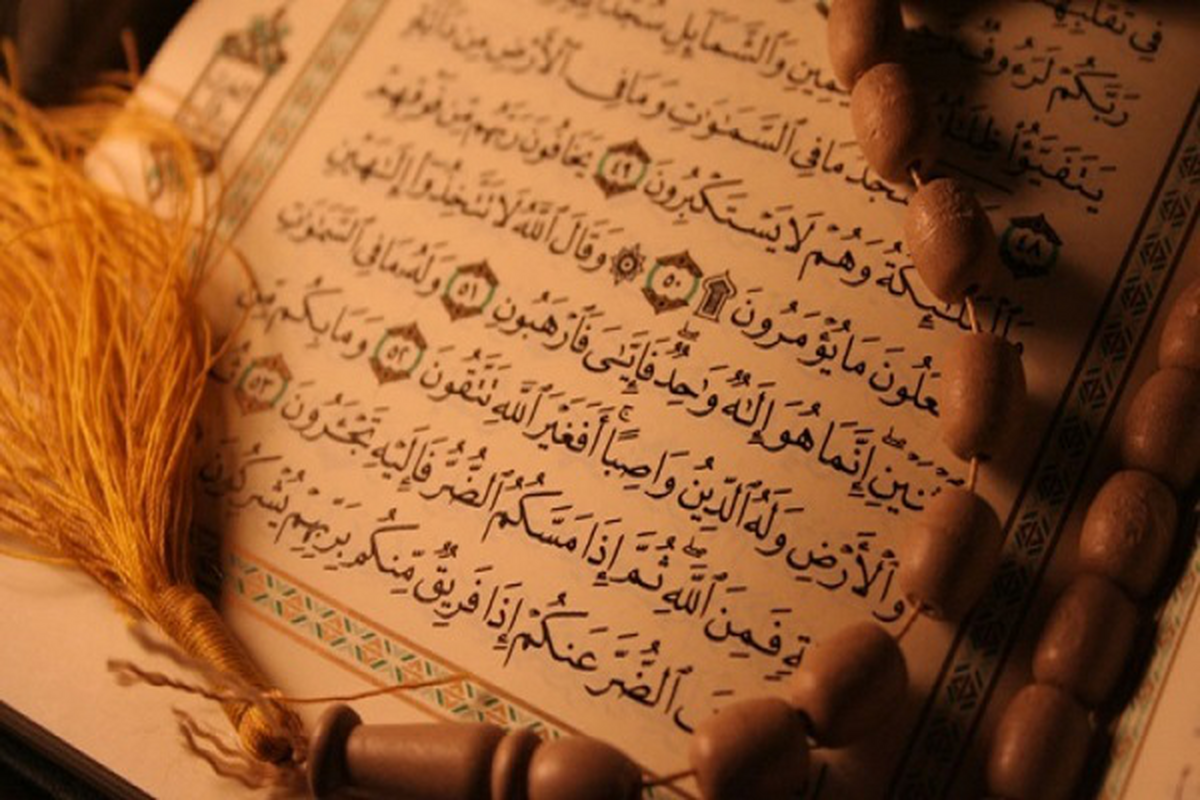 فِى تَقَلُّبِهِمْ
رَبَّكُمْ لَرَءُوفٌ
يَتَفَيَّؤُا۟ ظِلَٰلُهُۥ ٱلْيَمِينِ وَٱلشَّمَآئِلِ سُجَّدًا
٤٨ يَسْجُدُ مَا فِى ٱلسَّمَٰوَٰتِ وَمَا فِى ٱلْأَرْضِ مِن دَآبَّةٍ
وَٱلْمَلَٰٓئِكَةُ وَهُمْ لَا يَسْتَكْبِرُونَ ٤٩ يَخَافُونَ رَبَّهُم مِّن فَوْقِهِمْ
عَلُونَ مَا يُؤْمَرُونَ ۩ ٥٠ ۞ وَقَالَ ٱللَّهُ لَا تَتَّخِذُوٓا۟ إِلَٰهَيْنِ
نَيْنِ ۖ إِنَّمَا هُوَ إِلَٰهٌ وَٰحِدٌ ۖ فَإِيَّٰىَ فَٱرْهَبُونِ ٥١ وَلَهُۥ مَا فِى ٱلسَّمَٰوَٰتِ
وَٱلْأَرْضِ وَلَهُ ٱلدِّينُ وَاصِبًا ۚ أَفَغَيْرَ ٱللَّهِ تَتَّقُونَ ٥٢ وَمَا بِكُم مِّن
ةٍ فَمِنَ ٱللَّهِ ۖ ثُمَّ إِذَا مَسَّكُمُ ٱلضُّرُّ فَإِلَيْهِ تَجْـَٔرُونَ ٥٣
فَ ٱلضُّرَّ عَنكُمْ إِذَا فَرِيقٌ مِّنكُم بِرَبِّهِمْ يُشْرِكُونَ